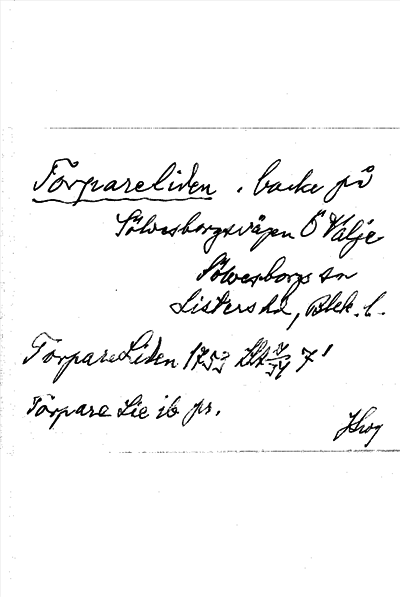 Torpareliden . backe på
Sölvesborgsvägen Ö Valje
Sölvesborgs sn
Listers hd, Blek. l.
TorpareLiden 1753 7'
Torpare Lie ib pr.